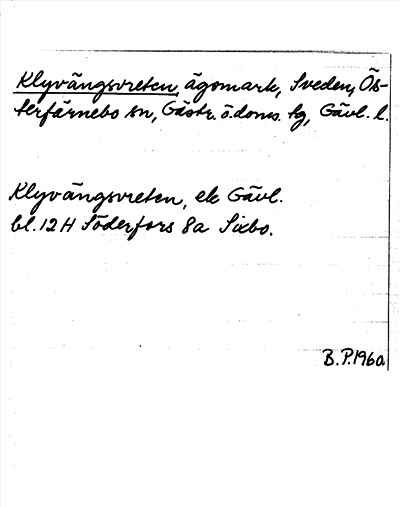 Klyvängsvreten, ägomark, Sveden, Ös-
terfärnebo sn, Gästr. ö. doms. tg, Gävl. l.
Klyvängsvreten, ek Gävl.
bl. 12 H Söderfors 8a Sixbo.
B.P. 1960.